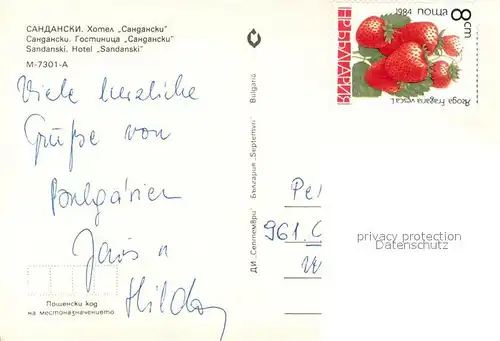 САНДАНСКИ. Хотел „Сандански"
Сандански. Гостиница „Сандански"
Sandanski. Hotel „Sandanski"
М-7301-А
Viele herzliche
Grüße von
Bulgarien
Hilda
Пошенски код
на местоназначението
ДИ „Септември" България „Septemvri" Bulgaria
НР БЪЛГАРИЯ
1984
поща
8 cm
Ягода Fragaria vesca L.
Pe
961.
privacy protection
Datenschutz